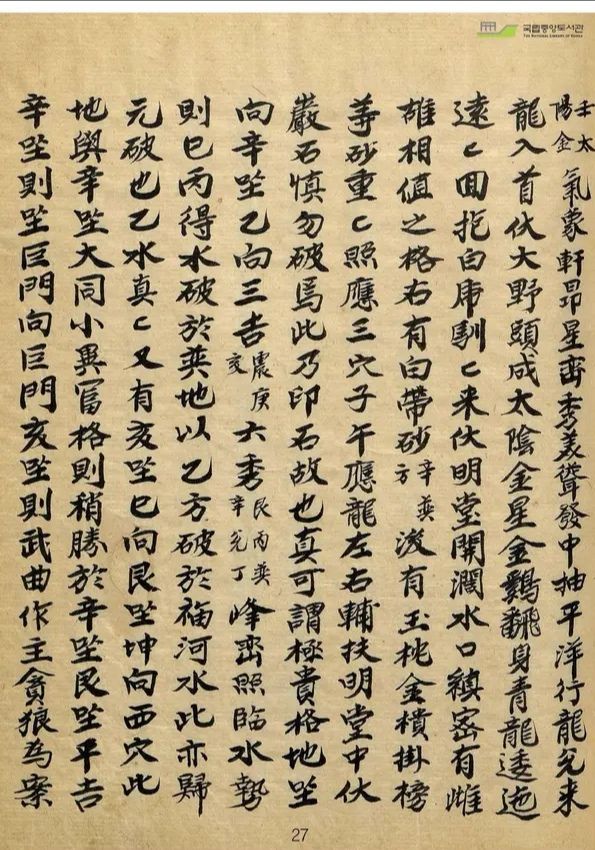 국립중앙도서관
THE NATIONAL LIBRARY OF KOREA
壬太陽金氣象軒昂星峦秀美聳發中抽平洋行龍兌来
龍入首伏大野頭成太陰金星金鷄翻身青龍逶迤
遠〻囬抱白虎馴〻来伏明堂開濶水口鎭密有雌
雄相値之格右有白帶砂辛巽方後有玉桃金横掛榜
等砂重〻照應三穴子午應龍左右輔扶明堂中伏
嚴石慎勿破焉此乃印石故也真可謂極貴格地坐
向辛坐乙向三吉震庚亥六秀艮丙巽辛兌丁峰峦照臨水勢
則巳丙得水破於巽地以乙方破於福河水此亦歸
元破也乙水真〻又有亥坐巳向艮坐坤向西穴此
地與辛坐大同小異冨格則稍勝於辛坐艮坐平吉
辛坐則坐巨門向巨門亥坐則武曲作主貪狼为案
27